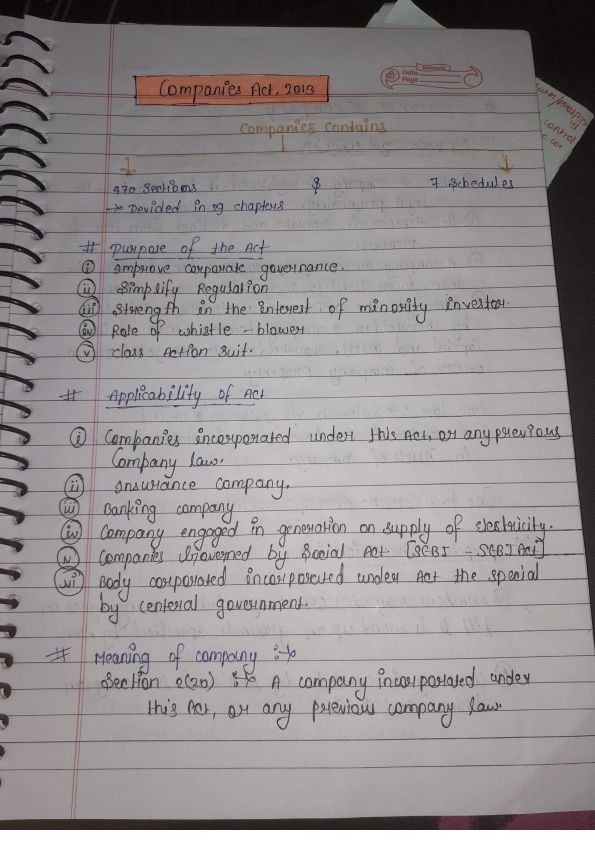 Companies Act, 2013
Date
Page
Companies Contains
470 Sections
&
7 Schedules
→ Devided in 29 chapters
# Purpose of the Act
(i) Improve corporate governance.
(ii) Simplify Regulation
(iii) Strength in the interest of minority investor.
(iv) Role of whistle - blower
(v) Class Action Suit.
# Applicability of Act
(i) Companies incorporated under this Act, or any previous
Company law.
(ii) Insurance Company.
(iii) Banking company
(iv) Company engaged in generation on supply of electricity.
(v) Companies Governed by Social Act [SEBI - SEBI Act]
(vi) Body corporated incorporated under Act the special
by centeral government.
# Meaning of company :→
Section 2(20) :→ A company incorporated under
this Act, or any previous company law.
control